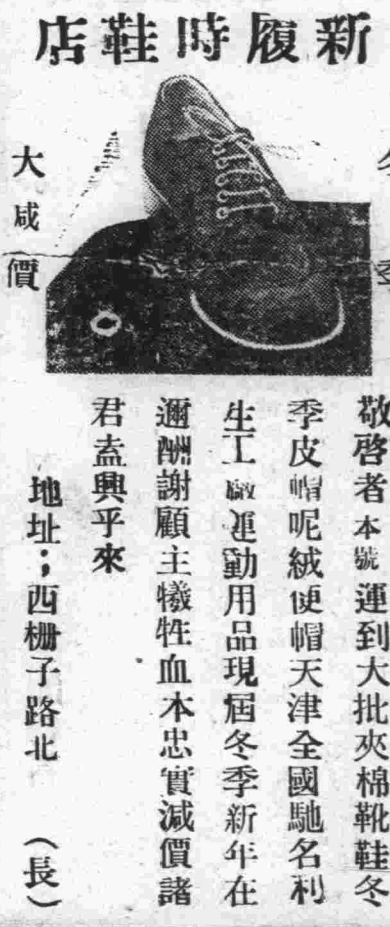 新履時鞋店
冬季
大咸價
敬啓者本號運到大批夾棉靴鞋冬
季皮帽呢絨便帽天津全國馳名利
生工廠運動用品現屆冬季新年在
邇酬謝顧主犧牲血本忠實減價諸
君盍興乎來
地址；西柵子路北
（長）